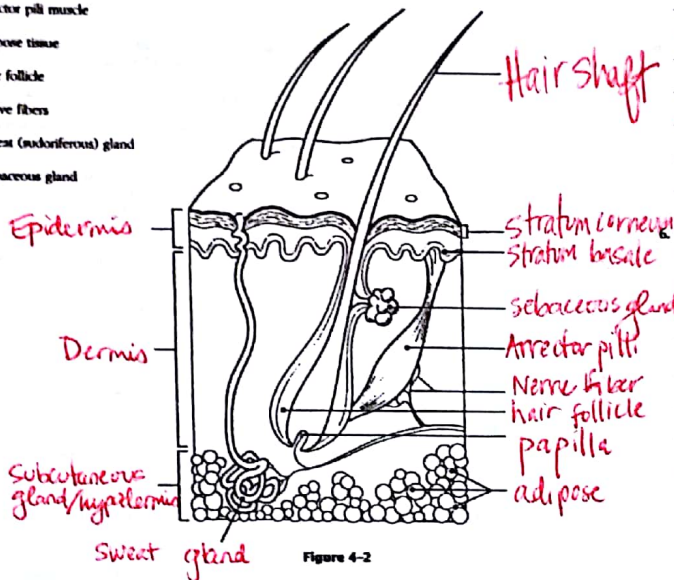 ctor pili muscle
pose tissue
follicle
ve fibers
eat (sudoriferous) gland
baceous gland
Hair shaft
Epidermis
stratum corneum
6.
stratum basale
sebaceous gland
Dermis
Arrector pili
Nerve fiber
hair follicle
papilla
Subcutaneous
gland/hypodermis
adipose
Sweat gland
Figure 4-2